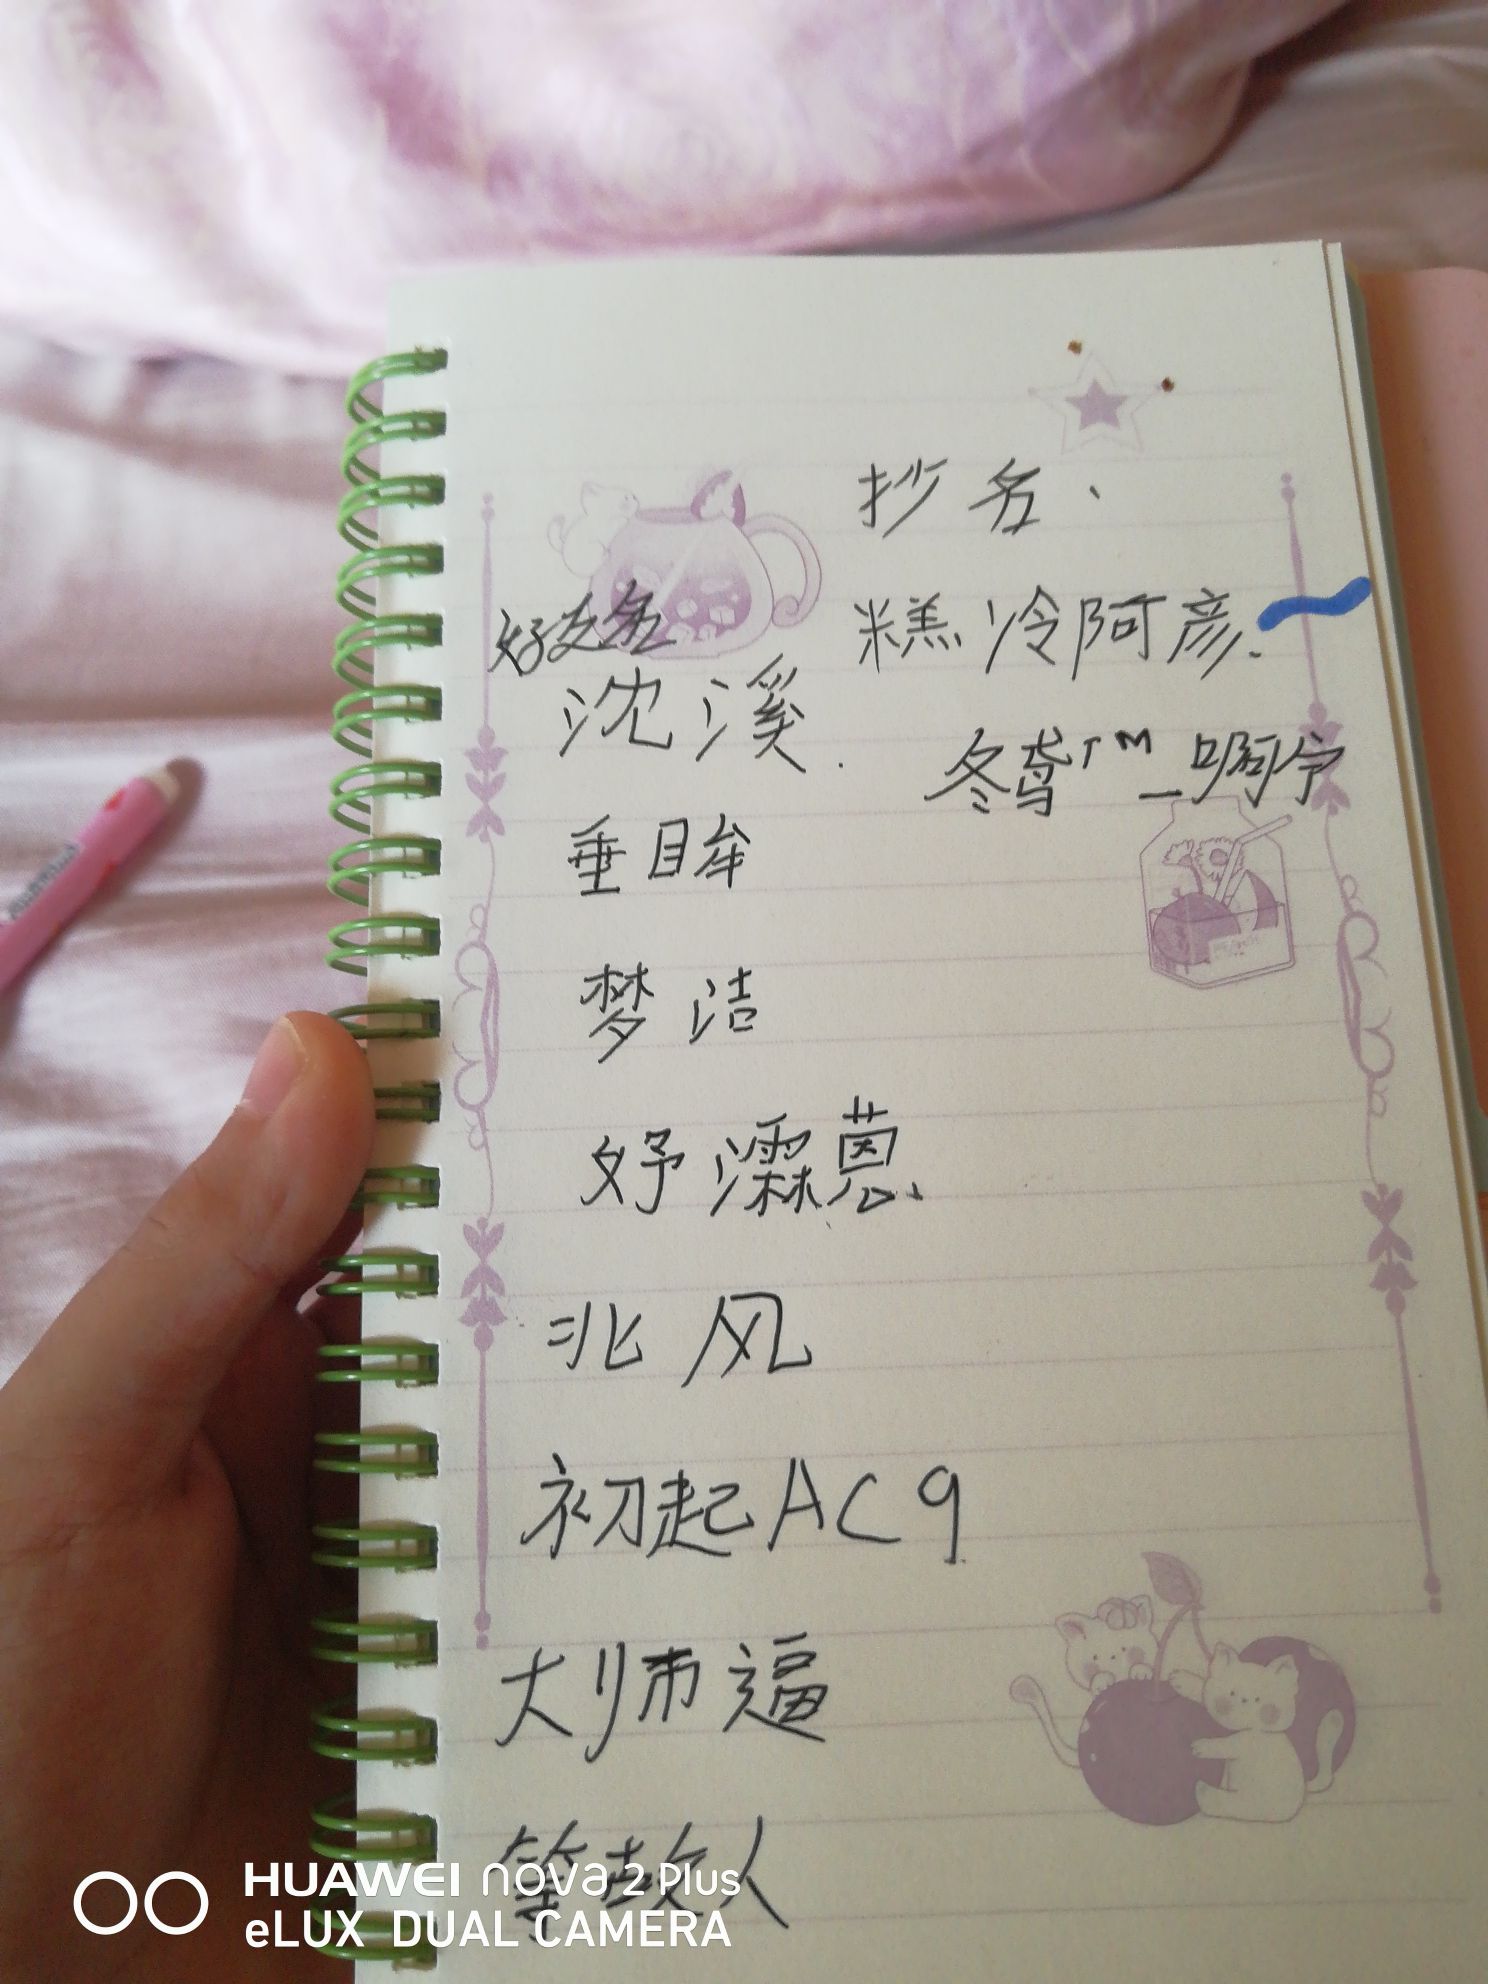 抄名、
糕冷阿彦.
沈溪.
冬鸢™_啊宁
垂眸
梦洁
妤霖蒽、
北风
初起AC9
大师逼
等故人
HUAWEI nova 2 Plus
eLUX DUAL CAMERA